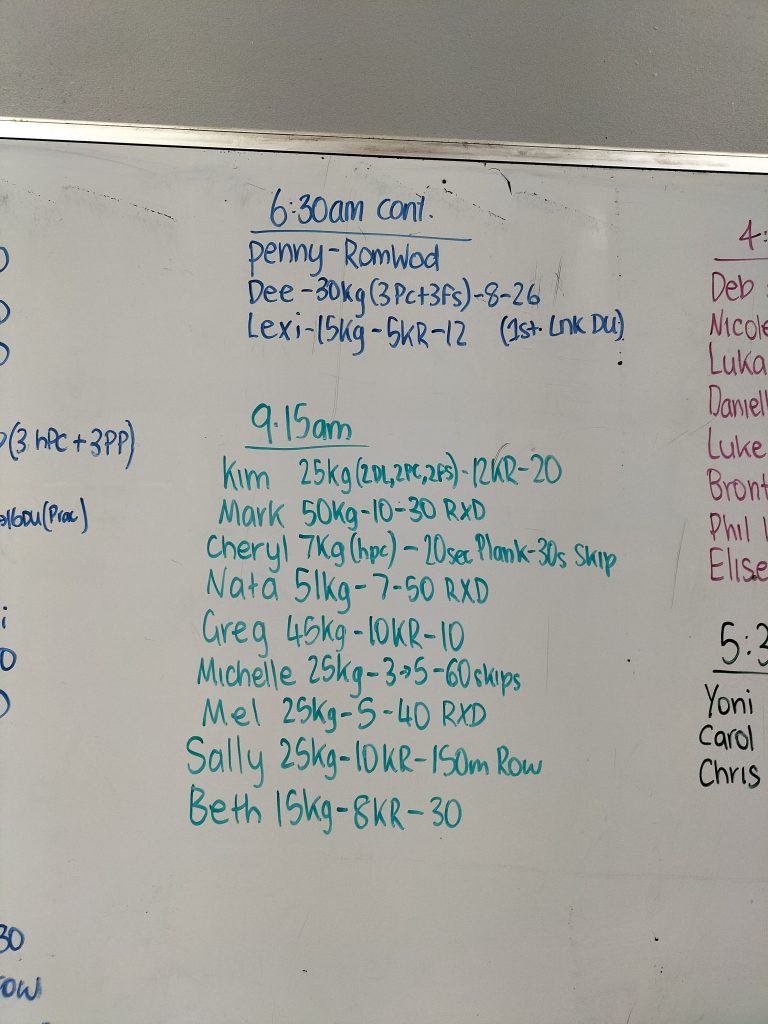 6:30am cont.
Penny-RomWod
Dee-30kg(3Pc+3Fs)-8-26
Lexi-15kg-5KR-12 (1st. Lnk DU)
9.15am
Kim 25kg(2DL,2PC,2FS)-12KR-20
Mark 50kg-10-30 RXD
Cheryl 7kg(hpc)-20sec Plank-30s Skip
Nata 51kg-7-50 RXD
Greg 45kg-10KR-10
Michelle 25kg-3→5-60skips
Mel 25kg-5-40 RXD
Sally 25kg-10KR-150m Row
Beth 15kg-8KR-30
(3 hPC+3PP)
16DU(Prac)
30
ow
4:
Deb
Nicole
Luka
Daniell
Luke
Bront
Phil
Elise
5:3
Yoni
Carol
Chris